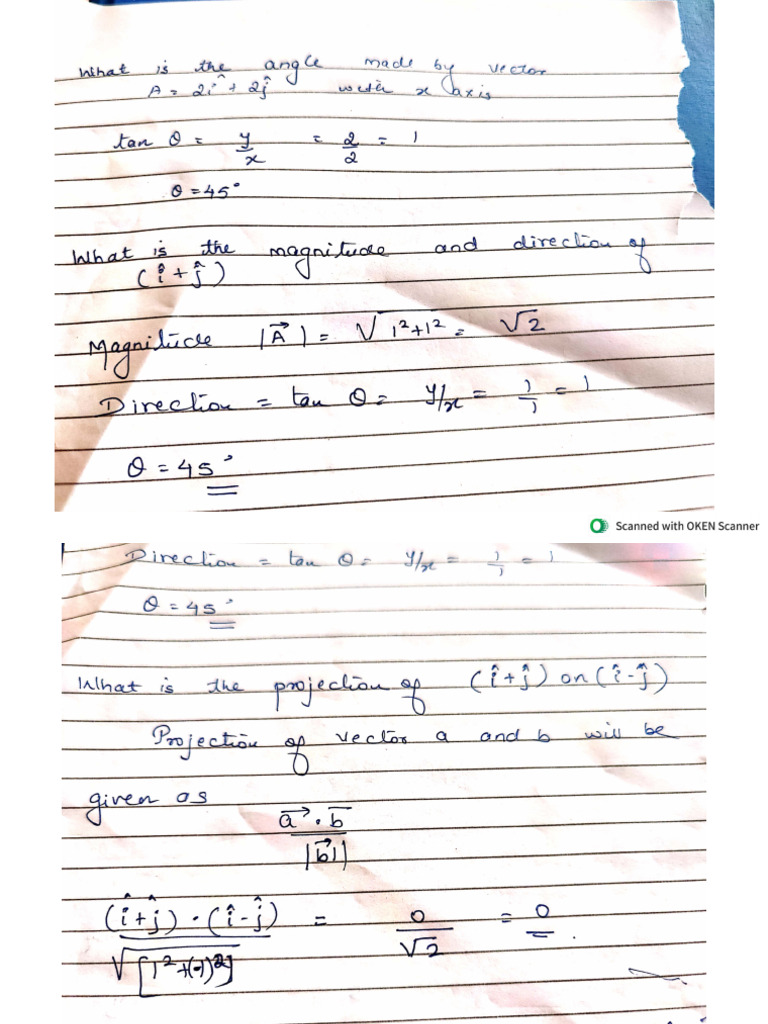 What is the angle made by vector
A = 2î + 2ĵ with x axis
tan θ = y/x = 2/2 = 1
θ = 45°
What is the magnitude and direction of
(î + ĵ)
Magnitude |A⃗| = √1²+1² = √2
Direction = tan θ = y/x = 1/1 = 1
θ = 45°
Scanned with OKEN Scanner
Direction = tan θ = y/x = 1/1 = 1
θ = 45°
What is the projection of (î + ĵ) on (î - ĵ)
Projection of vector a and b will be
given as
a⃗ . b⃗
|b⃗|
(î + ĵ) . (î - ĵ) = 0 = 0
√[1² + (-1)²] √2